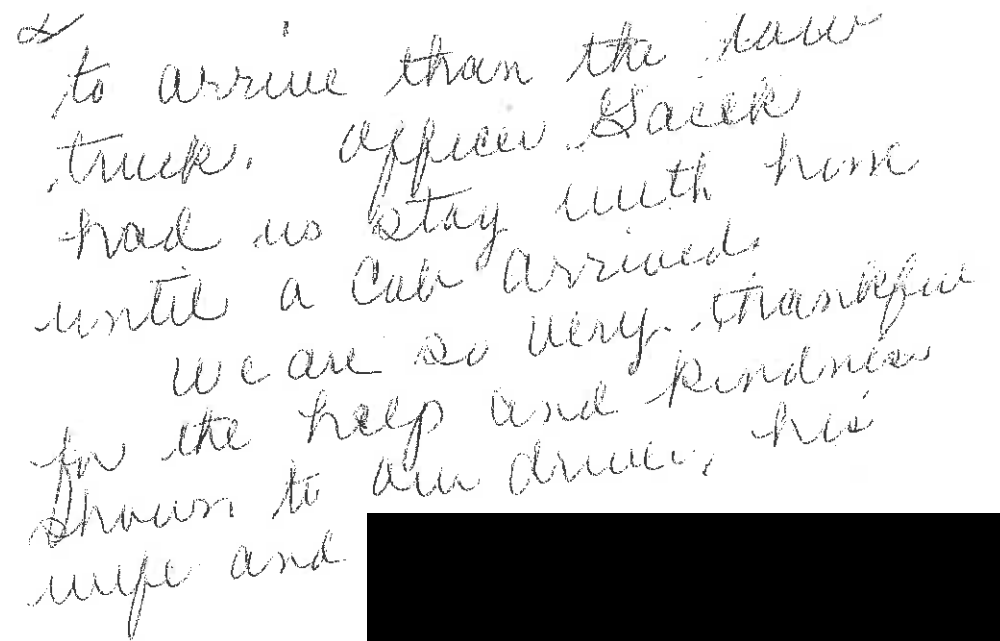 to arrive than the tow
truck. Officer Gacek
had us stay with him
until a Cab arrived.
We are so very thankful
for the help and kindness
shown to our driver, his
wife and